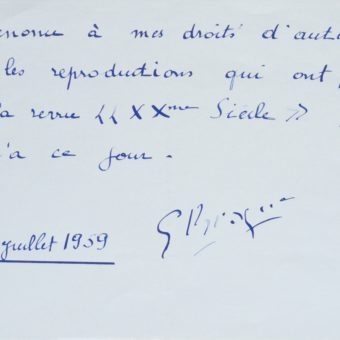 enonce à mes droits d'aut
les reproductions qui ont
a revue << XXme Siècle >>
'à ce jour.
juillet 1959
G Braque